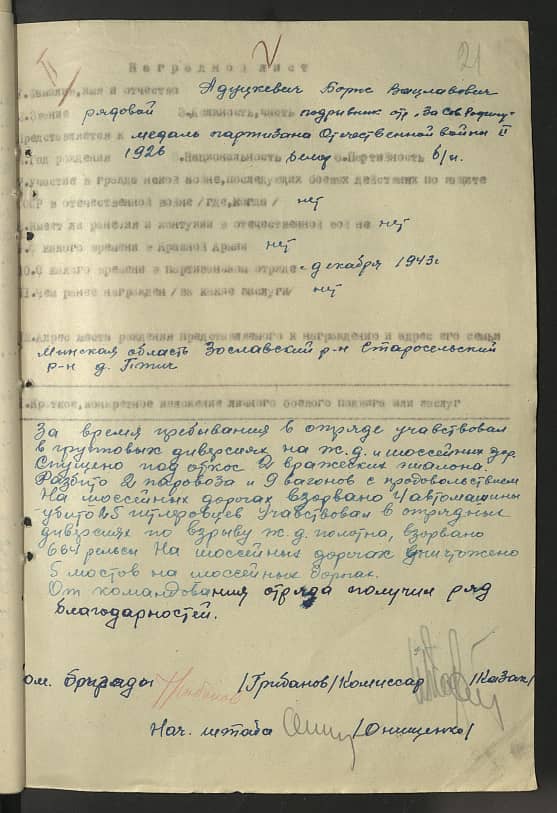 2
21
Наградной лист
1.Фамилия,имя и отчество Адуцкевич Борис Вацлавович
2.Звание рядовой 3.Должность,часть подривник отр „За Сов Родину"
Представляется к медаль партизана Отечественной войны II
4.Год рождения 1926 5.Национальность белор 6.Партийность б/п.
7.Участие в гражданской войне,последующих боевых действиях по защите
СССР в отечественной войне /где,когда/ нет
8.Имеет ли ранения и контузии в отечественной войне нет
9.С какого времени в Красной Армии нет
10.С какого времени в партизанском отряде с декабря 1943г
11.Чем ранее награжден /за какие заслуги/ нет
12.Адрес места рождения представляемого к награждению и адрес его семьи
Минская область Зославский р-н Старосельский
р-н д. Птич
1.Краткое,конкретное изложение личного боевого подвига или заслуг
За время пребывания в отряде учавствовал
в групповых диверсиях на ж.д. и шоссейных дор.
Спущено под откос 2 вражеских эшалона.
Разбито 2 паровоза и 9 вагонов с продовольствием
На шоссейных дорогах взорвано 4 автомашины
убито 25 гитлеровцев Учавствовал в отрядных
диверсиях по взрыву ж.д. полотна, взорвано
664 рельсы На шоссейных дорогах уничтожено
5 мостов на шоссейных дорогах.
От командования отряда получил ряд
благодарностей.
Ком. бригады /Грибанов/ Комиссар /Казак/
Нач. штаба /Онищенко/